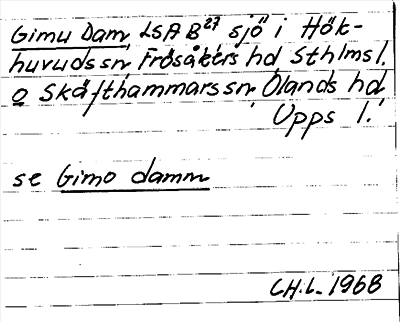 Gimu Dam LSA B27 sjö i Hök-
huvuds sn, Frösåkers hd Sthlms l.
o Skäfthammars sn Ölands hd
Upps l.
se Gimo damm
CH.L. 1968